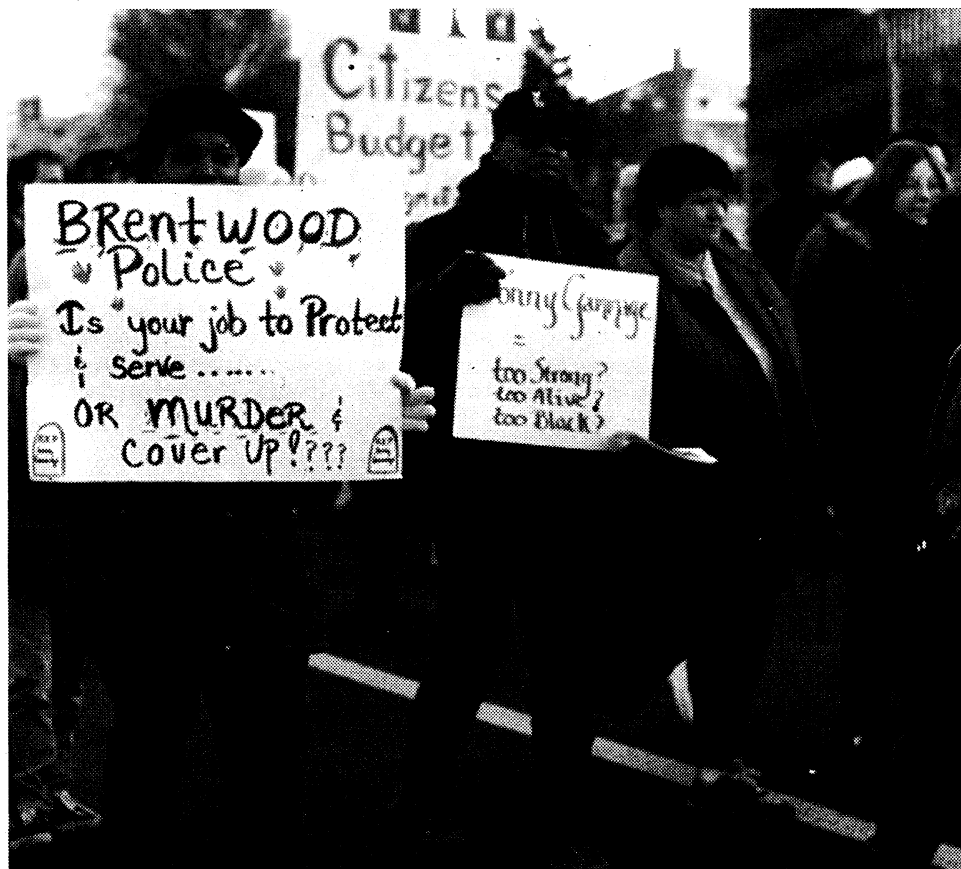 Citizens
Budget
BRentWOOD
Police
Is your job to Protect
& serve ......
OR MURDER &
COVER UP!???
Gammage
=
too Strong?
too Alive?
too Black?